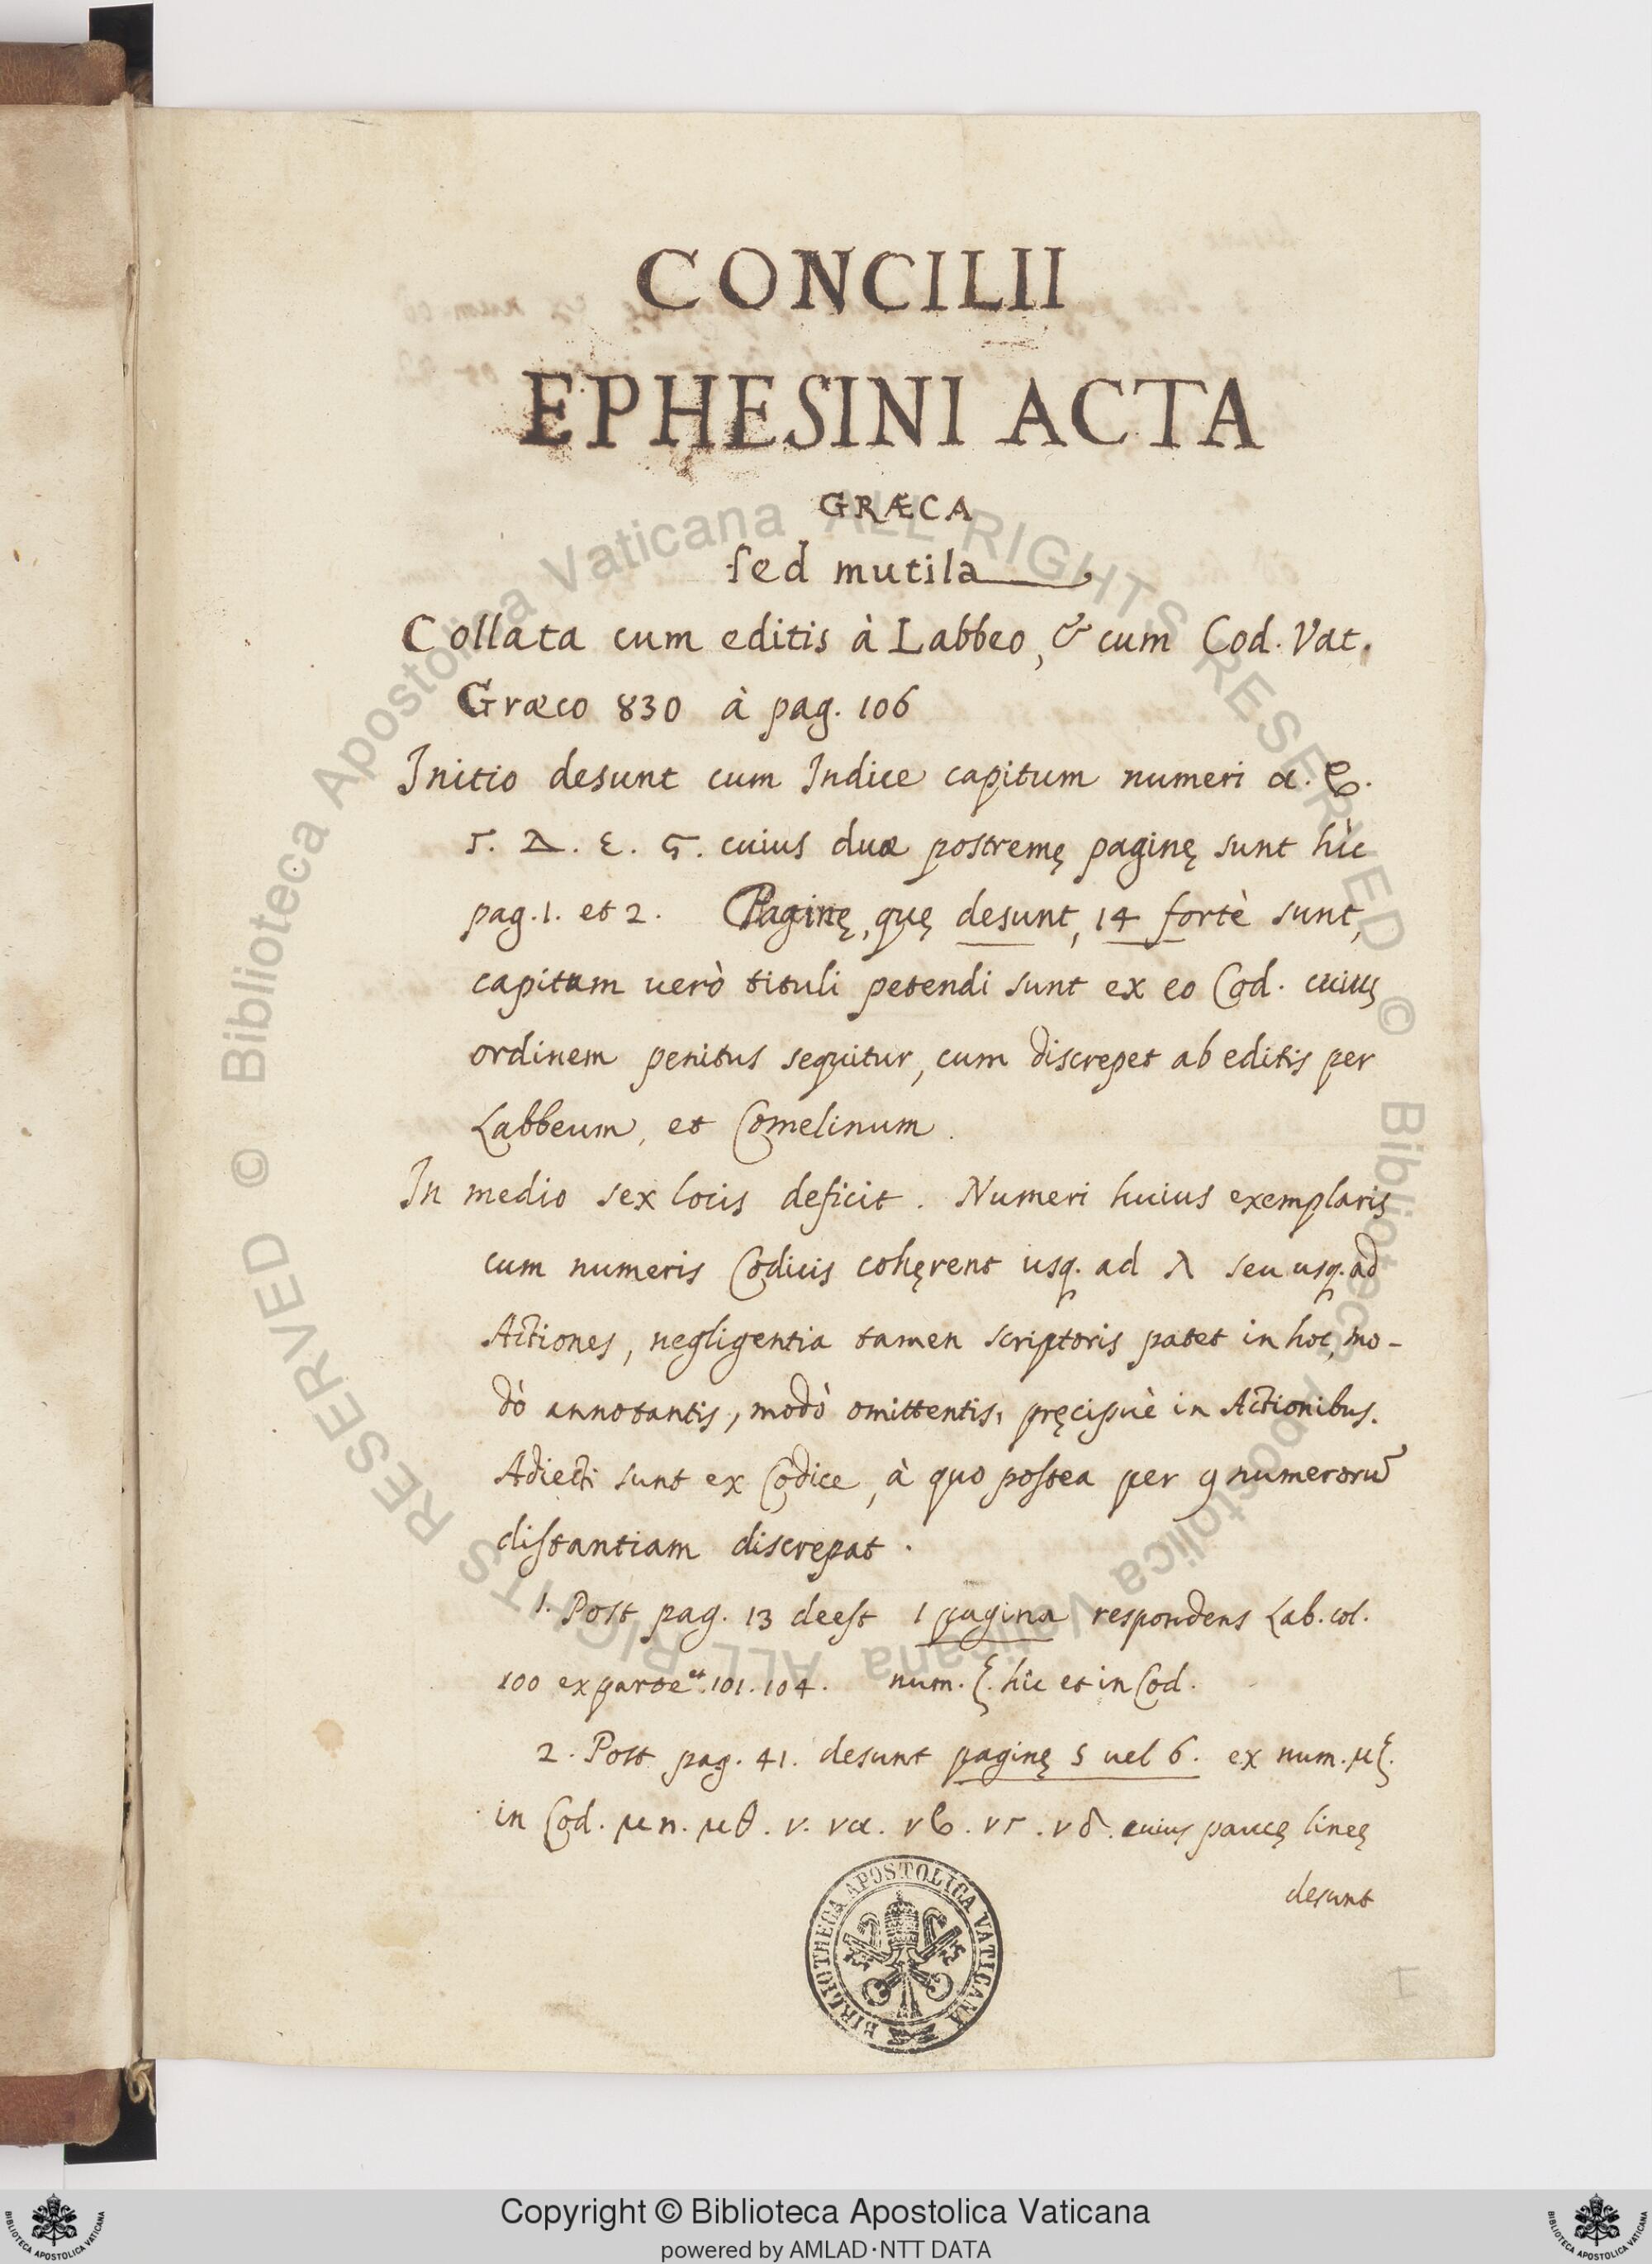 CONCILII
EPHESINI ACTA
GRÆCA
sed mutila
Collata cum editis à Labbeo, & cum Cod. Vat.
Græco 830 à pag. 106
Initio desunt cum Indice capitum numeri α. ϐ.
Γ. Δ. ε. ϛ. cuius duæ postremę paginę sunt hìc
pag. 1. et 2. Paginę, quę desunt, 14 fortè sunt,
capitum uerò tituli petendi sunt ex eo Cod. cuius
ordinem penitus sequitur, cum discrepet ab editis per
Labbeum, et Comelinum.
In medio sex locis deficit. Numeri huius exemplaris
cum numeris Codicis cohęrent usq. ad λ seu usq. ad
Actiones, negligentia tamen scriptoris patet in hoc, mo-
dò annotantis, modò omittentis, pręcipuè in Actionibus.
Adiecti sunt ex Codice, à quo postea per 9 numerorū
distantiam discrepat.
1. Post pag. 13 deest 1 pagina respondens Lab. col.
100 ex parte et 101. 104. num. ξ. hìc et in Cod.
2. Post pag. 41. desunt paginę 5 uel 6. ex num. μξ.
in Cod. μη. μθ. ν. να. νϐ. νΓ. νδ. cuius paucę lineę
desunt
BIBLIOTHECA APOSTOLICA VATICANA
I
© Biblioteca Apostolica Vaticana ALL RIGHTS RESERVED © Biblioteca Apostolica Vaticana ALL RIGHTS RESERVED
Copyright © Biblioteca Apostolica Vaticana
powered by AMLAD·NTT DATA
BIBLIOTECA APOSTOLICA VATICANA
BIBLIOTECA APOSTOLICA VATICANA